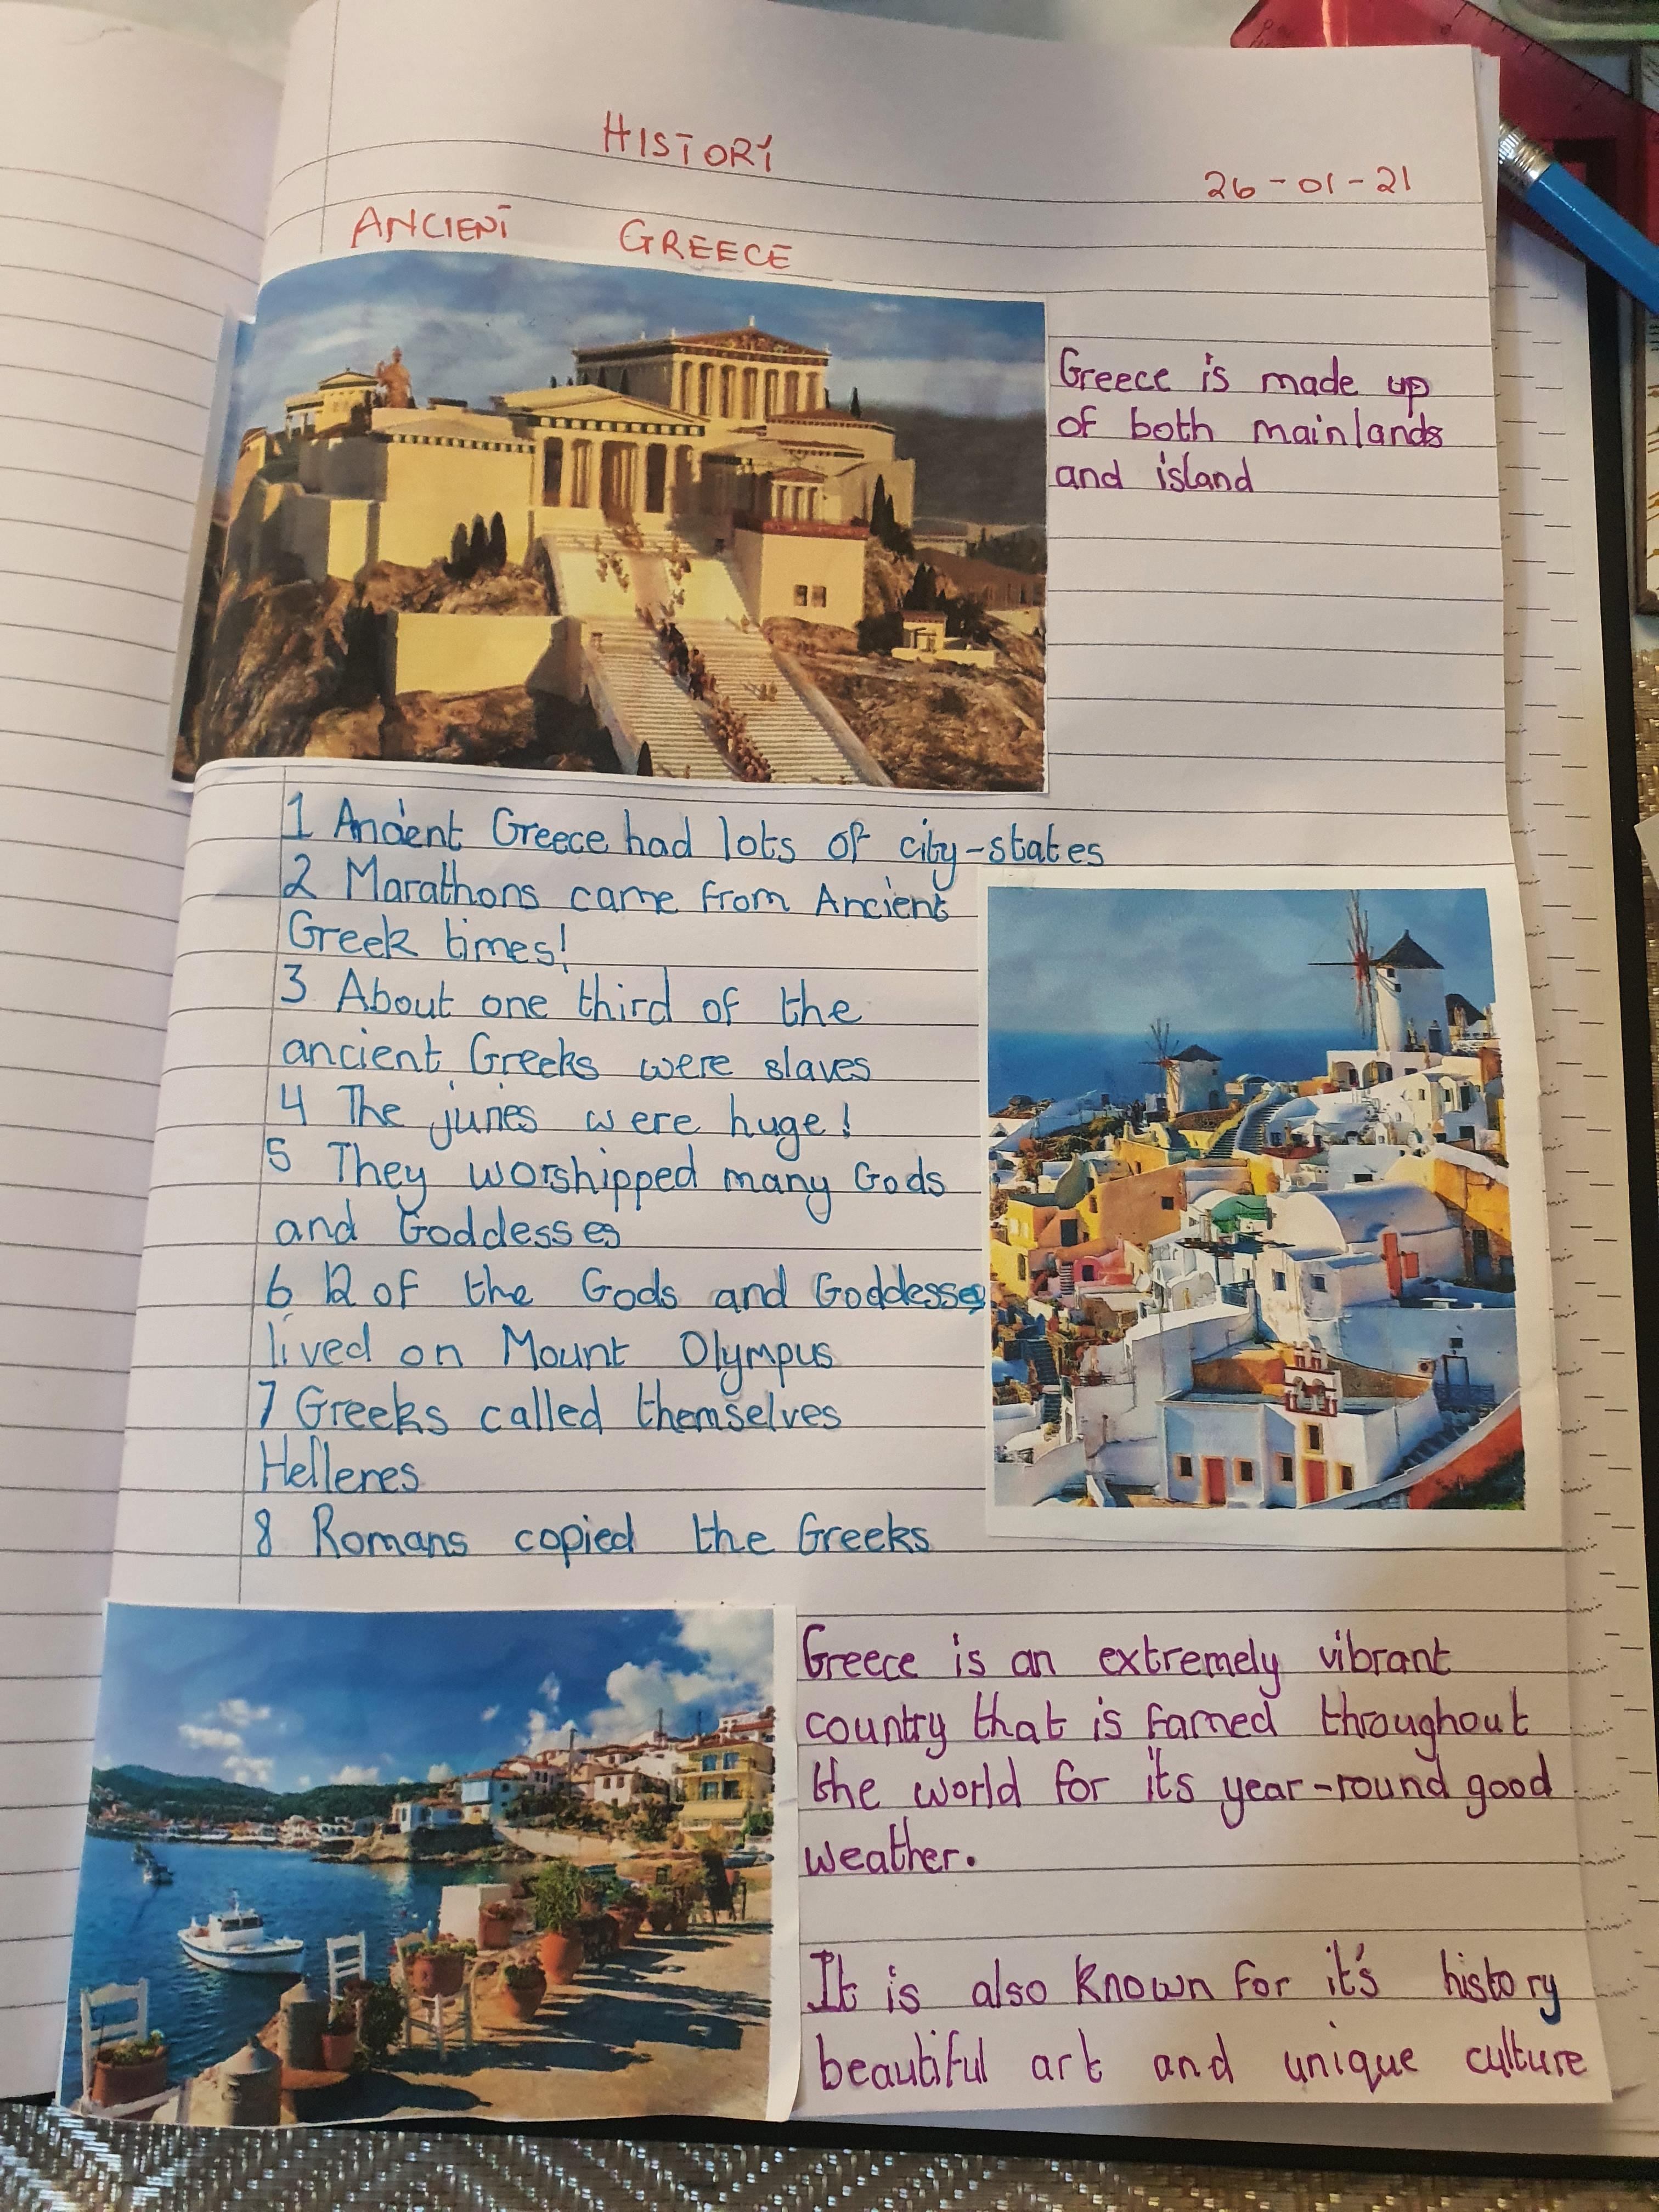 HISTORY
26-01-21
ANCIENT GREECE
Greece is made up
of both mainlands
and island
1 Ancient Greece had lots of city-states
2 Marathons came from Ancient
Greek times!
3 About one third of the
ancient Greeks were slaves
4 The juries were huge!
5 They worshipped many Gods
and Goddesses
6 12 of the Gods and Goddesses
lived on Mount Olympus
7 Greeks called themselves
Hellenes
8 Romans copied the Greeks
Greece is an extremely vibrant
country that is famed throughout
the world for its year-round good
weather.
It is also known for it's history
beautiful art and unique culture